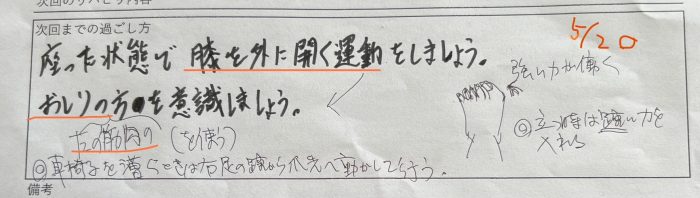 次回のリハビリ内容
次回までの過ごし方
5/20
座った状態で 膝を外に開く運動をしましょう。
おしりの方を意識しましょう。
右の筋肉の (を使う)
強い力が働く
◎立つ時は強い力を
入れる
◎車椅子を漕ぐときは右足の踵から爪先へ動かして行う。
備考